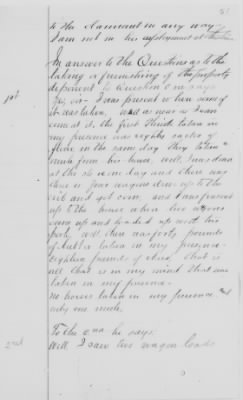 to the claimant in any way.
I am not in his employment at this time
In answer to the Questions as to the
taking or furnishing of the property
deponent to Question 1st says
1st
Yes, sir. I was present when some of
it was taken, well as near as I can
come at it, the first I think taken in
my presence was eighty sacks of
flour in the same day they taken a
mule from his house, well, I was down
at the in day and there was
three or four wagons drove up to the
crib and got corn, and I was present
up to the house when two wagons
drove up and loaded up with his
pork, well there was forty pounds
of butter taken in my presence
Eighteen pounds of that is
all that is in my mind that was
taken in my presence.
No horses taken in my presence and
only one mule,
To the 2nd he says
2nd
Well, I saw two wagon loads